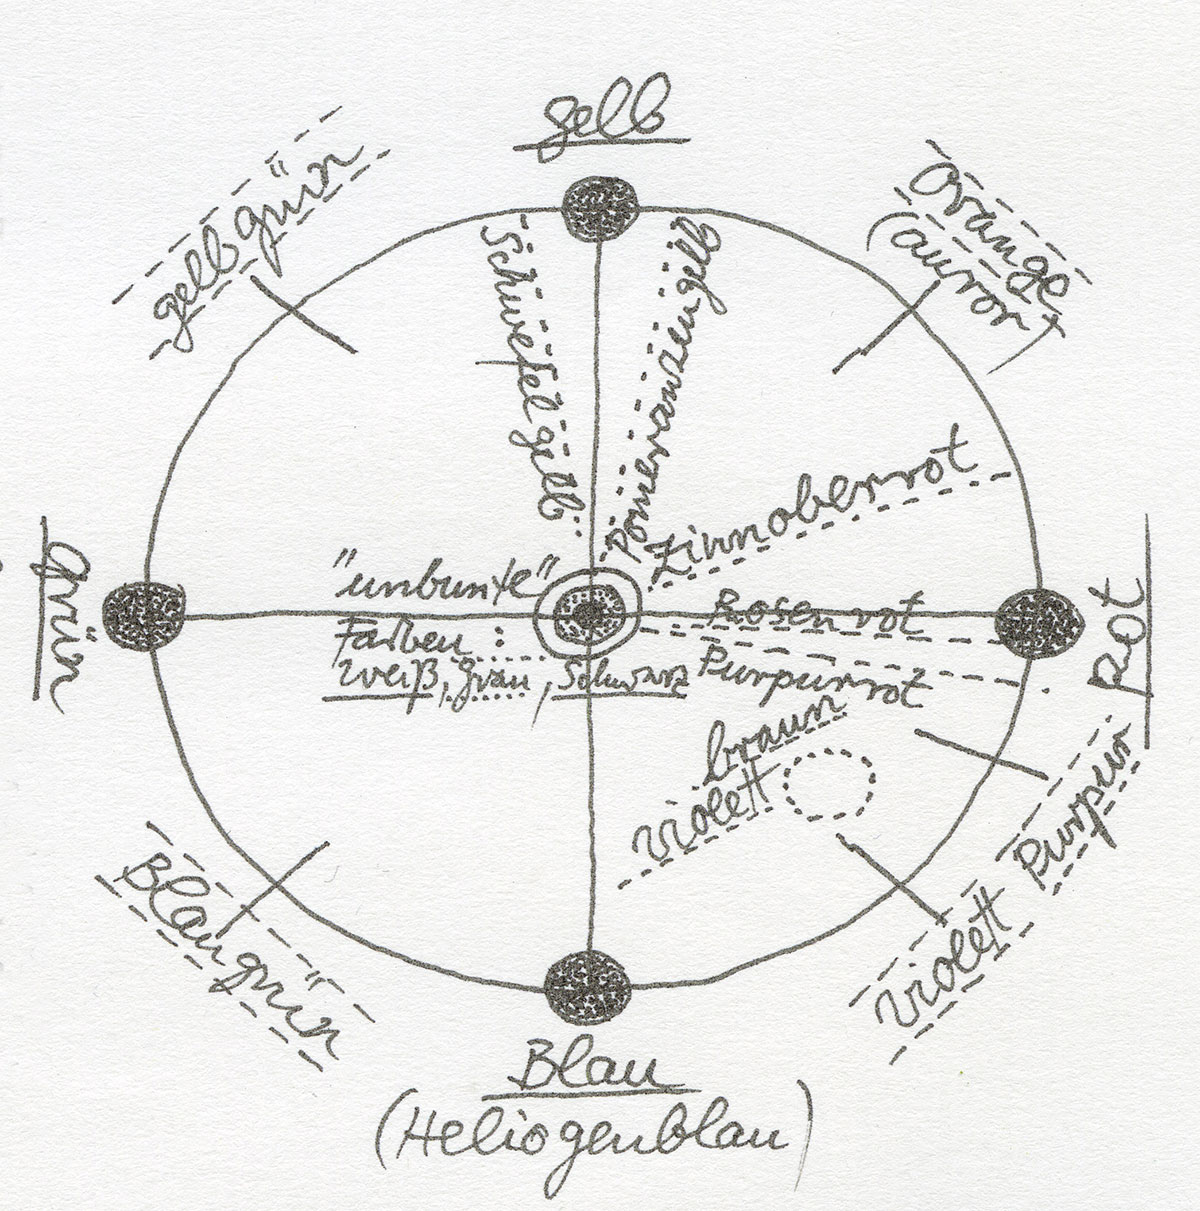 gelb
gelbgrün
Orange
(auror
Schwefelgelb
Pomeranzengelb
Zinnoberrot
"unbunte"
Farben:
weiß, grau, Schwarz
Rosenrot
Purpurrot
braun
violett
Grün
Rot
Purpur
Violett
Blaugrün
Blau
(Heliogenblau)